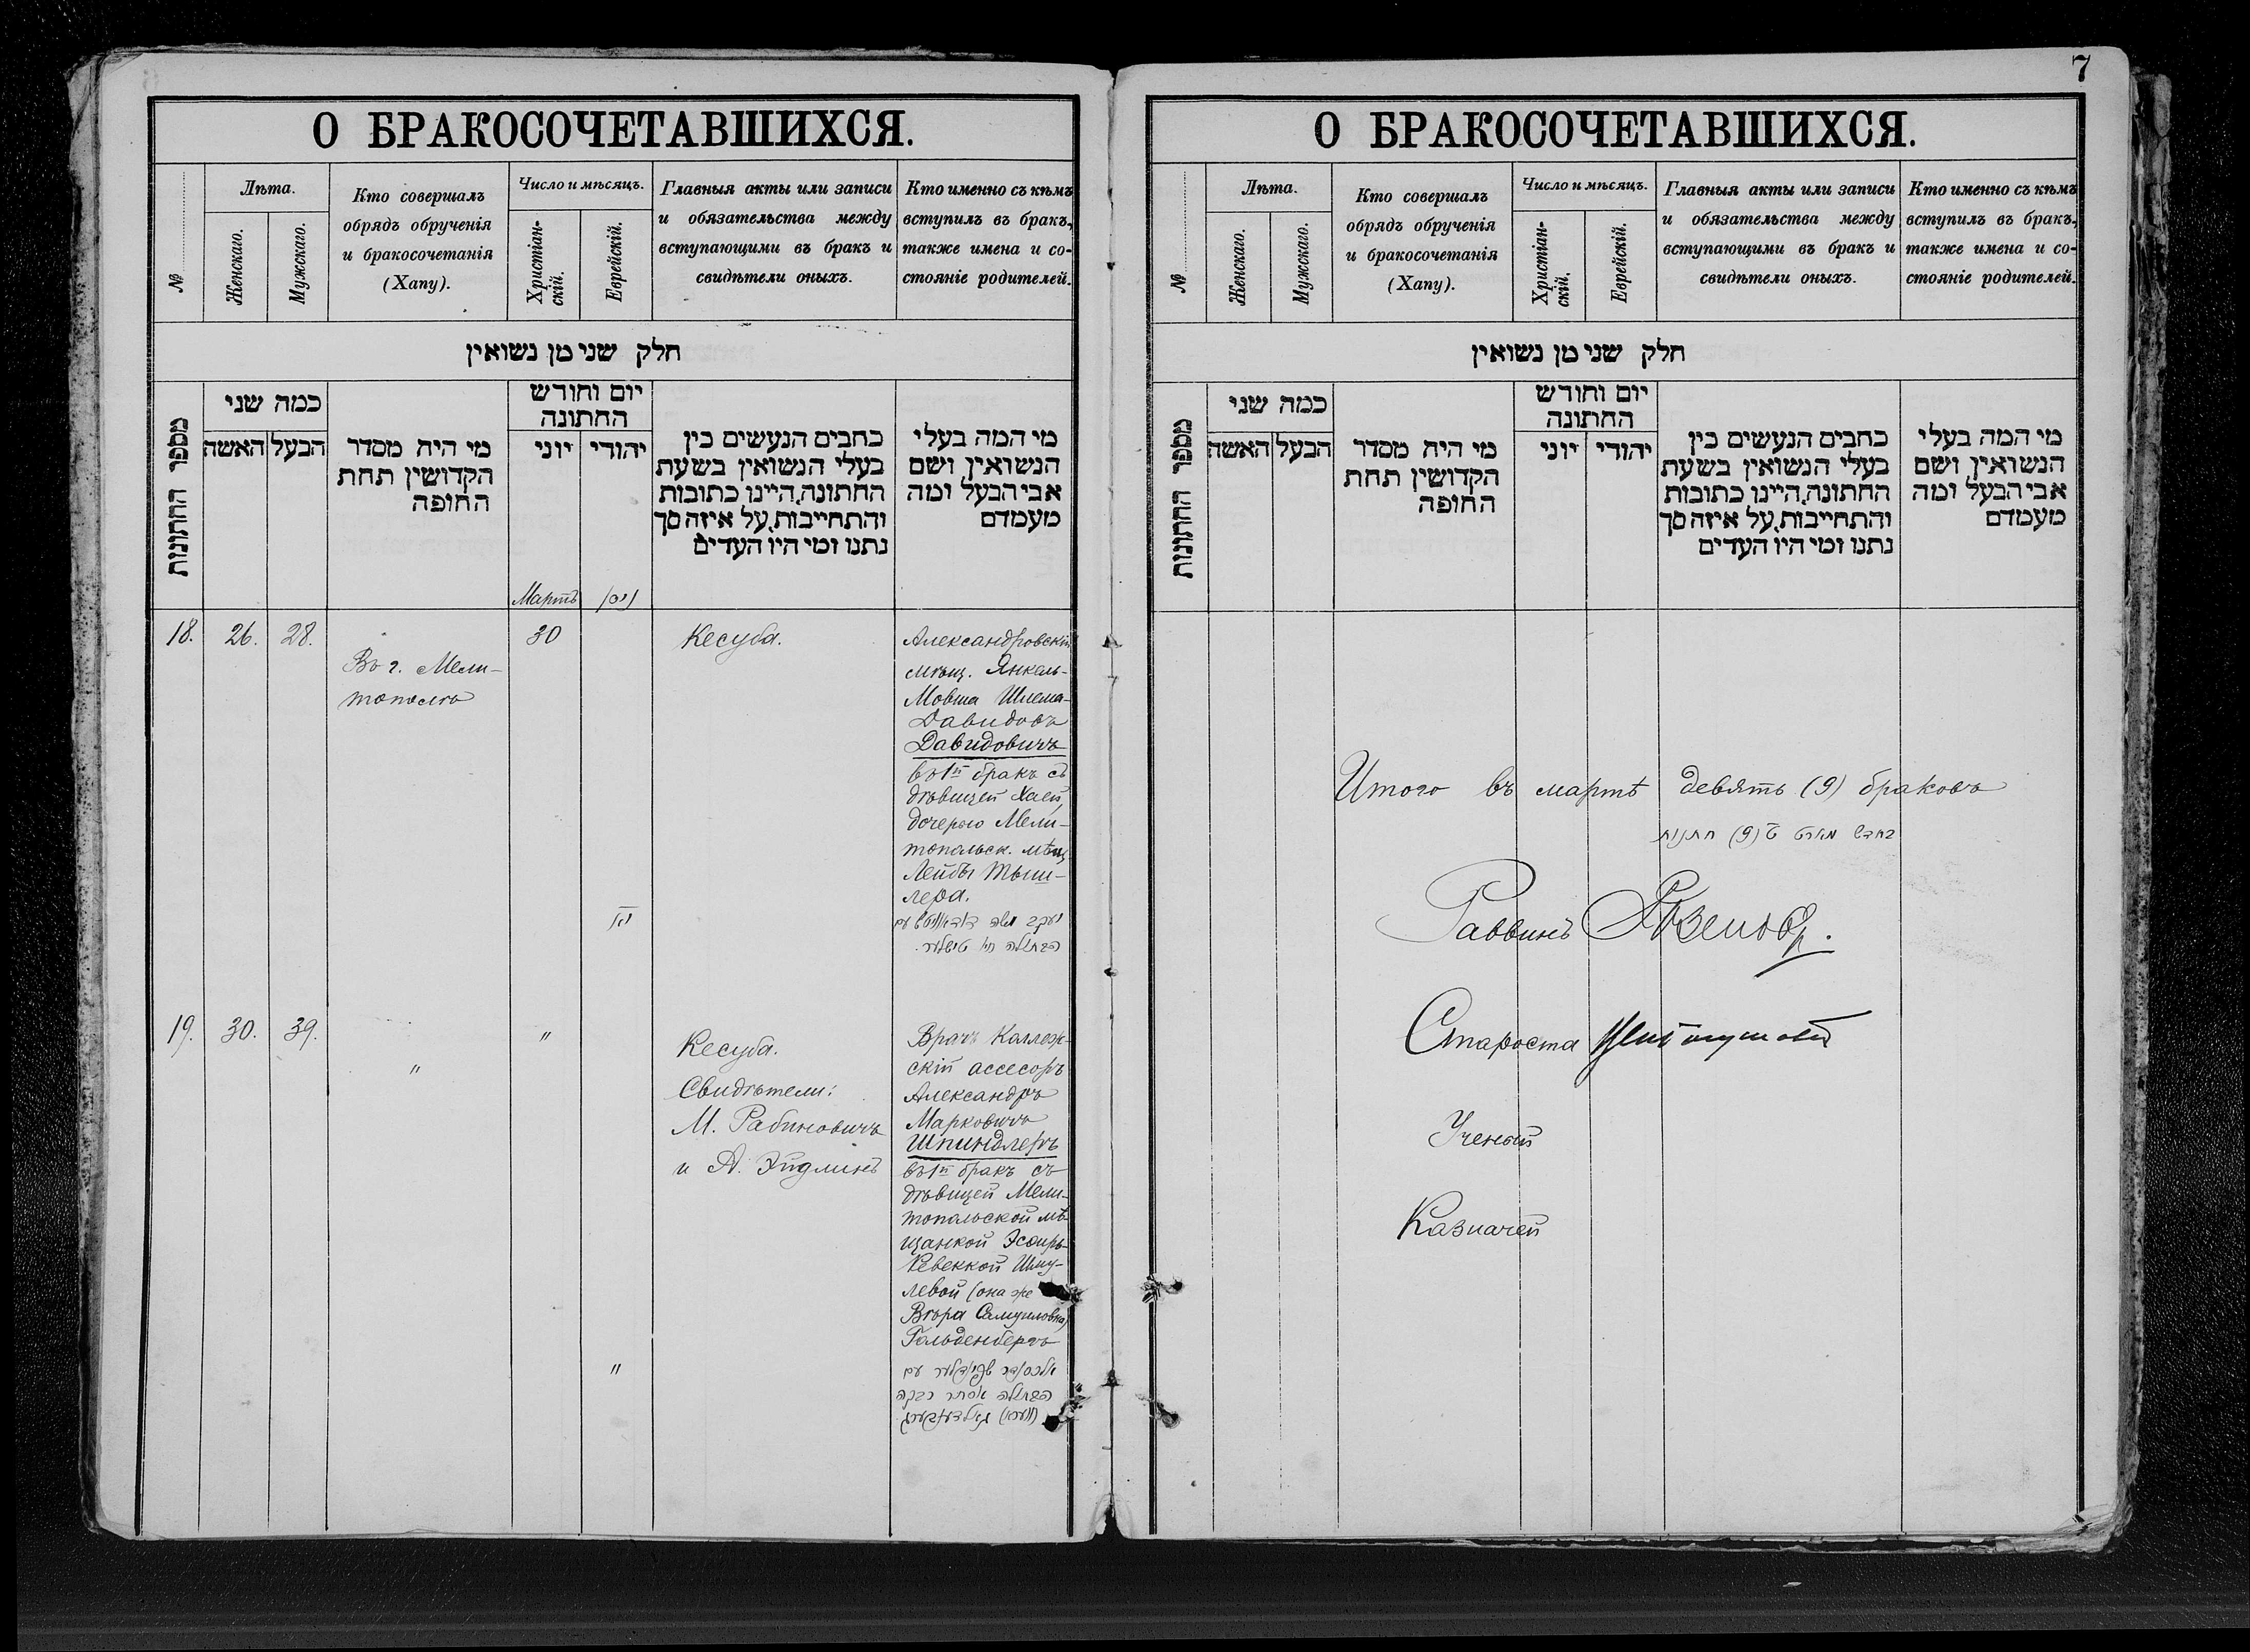 О БРАКОСОЧЕТАВШИХСЯ.
№
Лѣта.
Женскаго.
Мужскаго.
Кто совершалъ
обрядъ обрученія
и бракосочетанія
(Хапу).
Число и мѣсяцъ.
Христіан-
скій.
Еврейскій.
Главныя акты или записи
и обязательства между
вступающими въ бракъ и
свидѣтели оныхъ.
Кто именно съ кѣмъ
вступилъ въ бракъ,
также имена и со-
стояніе родителей.
חלק שני מן נשואין
מספר החתונות
כמה שני
האשה
הבעל
מי היה מסדר
הקדושין תחת
החופה
יום וחודש
החתונה
יוני
יהודי
כתבים הנעשים בין
בעלי הנשואין בשעת
החתונה, היינו כתובות
והתחייבות, על איזה סך
נתנו ומי היו העדים
מי המה בעלי
הנשואין ושם
אבי הבעל ומה
מעמדם
Мартъ
ניסן
18.
26.
28.
Въ г. Мели-
тополѣ
30
Кесуба.
Александровскій
мѣщ. Янкель-
Мовша Шлема-
Давидовъ
Давидовичъ
въ 1й бракъ съ
дѣвицей Хаей,
дочерью Мели-
топольск. мѣщ.
Лейбы Тыш-
лера.
יעקב משה דאווידאוויטש עם
הבתולה חי׳ טישלער.
19.
30.
39.
"
"
Кесуба.
Свидѣтели:
М. Рабиновичъ
и А. Эйдлинъ
Врачъ Коллеж-
скій ассесоръ
Александръ
Марковичъ
Шпиндлеръ
въ 1й бракъ съ
дѣвицей Мели-
топольской мѣ-
щанкой Эсѳирь-
Ревеккой Шму-
левой (она же
Вѣра Самуиловна)
Гольденбергъ
"
אלכסנדר שפינדלער עם
הבתולה אסתר רבקה
(ווערא) גאלדענבערג
7
О БРАКОСОЧЕТАВШИХСЯ.
№
Лѣта.
Женскаго.
Мужскаго.
Кто совершалъ
обрядъ обрученія
и бракосочетанія
(Хапу).
Число и мѣсяцъ.
Христіан-
скій.
Еврейскій.
Главныя акты или записи
и обязательства между
вступающими въ бракъ и
свидѣтели оныхъ.
Кто именно съ кѣмъ
вступилъ въ бракъ,
также имена и со-
стояніе родителей.
חלק שני מן נשואין
מספר החתונות
כמה שני
האשה
הבעל
מי היה מסדר
הקדושין תחת
החופה
יום וחודש
החתונה
יוני
יהודי
כתבים הנעשים בין
בעלי הנשואין בשעת
החתונה, היינו כתובות
והתחייבות, על איזה סך
נתנו ומי היו העדים
מי המה בעלי
הנשואין ושם
אבי הבעל ומה
מעמדם
Итого въ мартѣ девять (9) браковъ
בחדש מארט ט (9) חתונות
Раввинъ
Староста
Ученый
Казначей